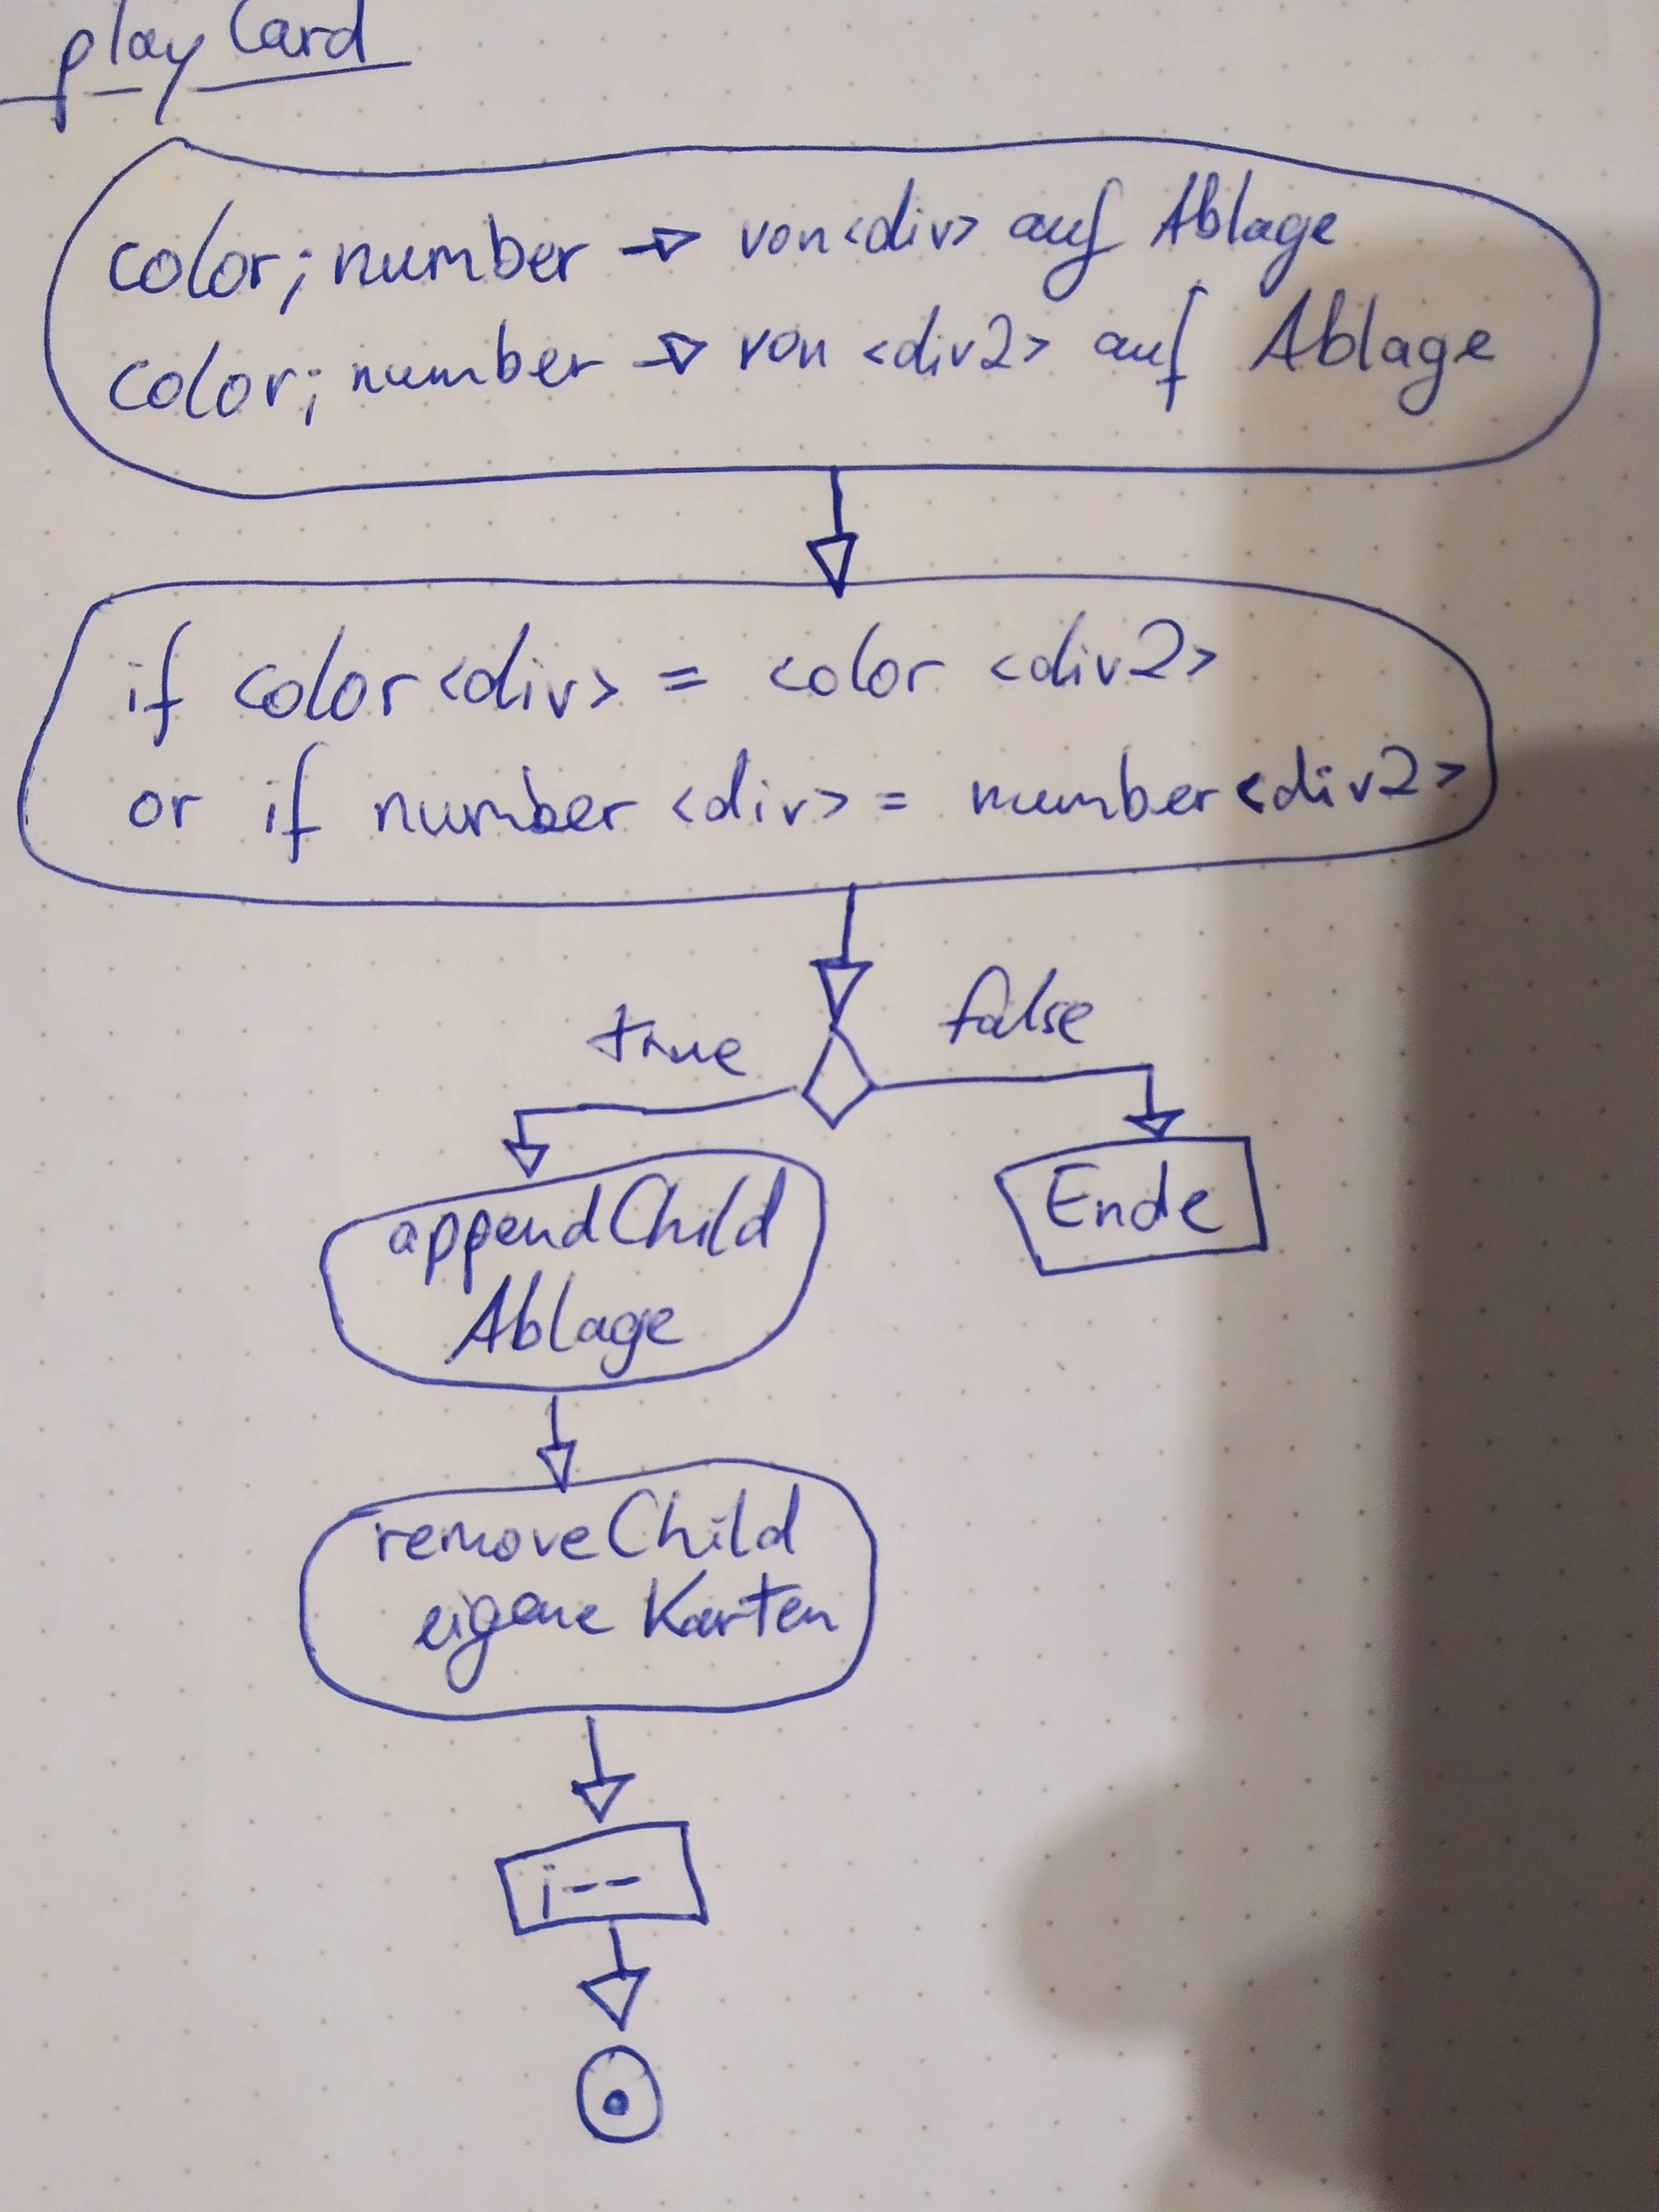 playCard
color; number → von <div> auf Ablage
color; number → von <div2> auf Ablage
if color <div> = color <div2>
or if number <div> = number <div2>
true
false
appendChild
Ablage
Ende
removeChild
eigene Karten
i--